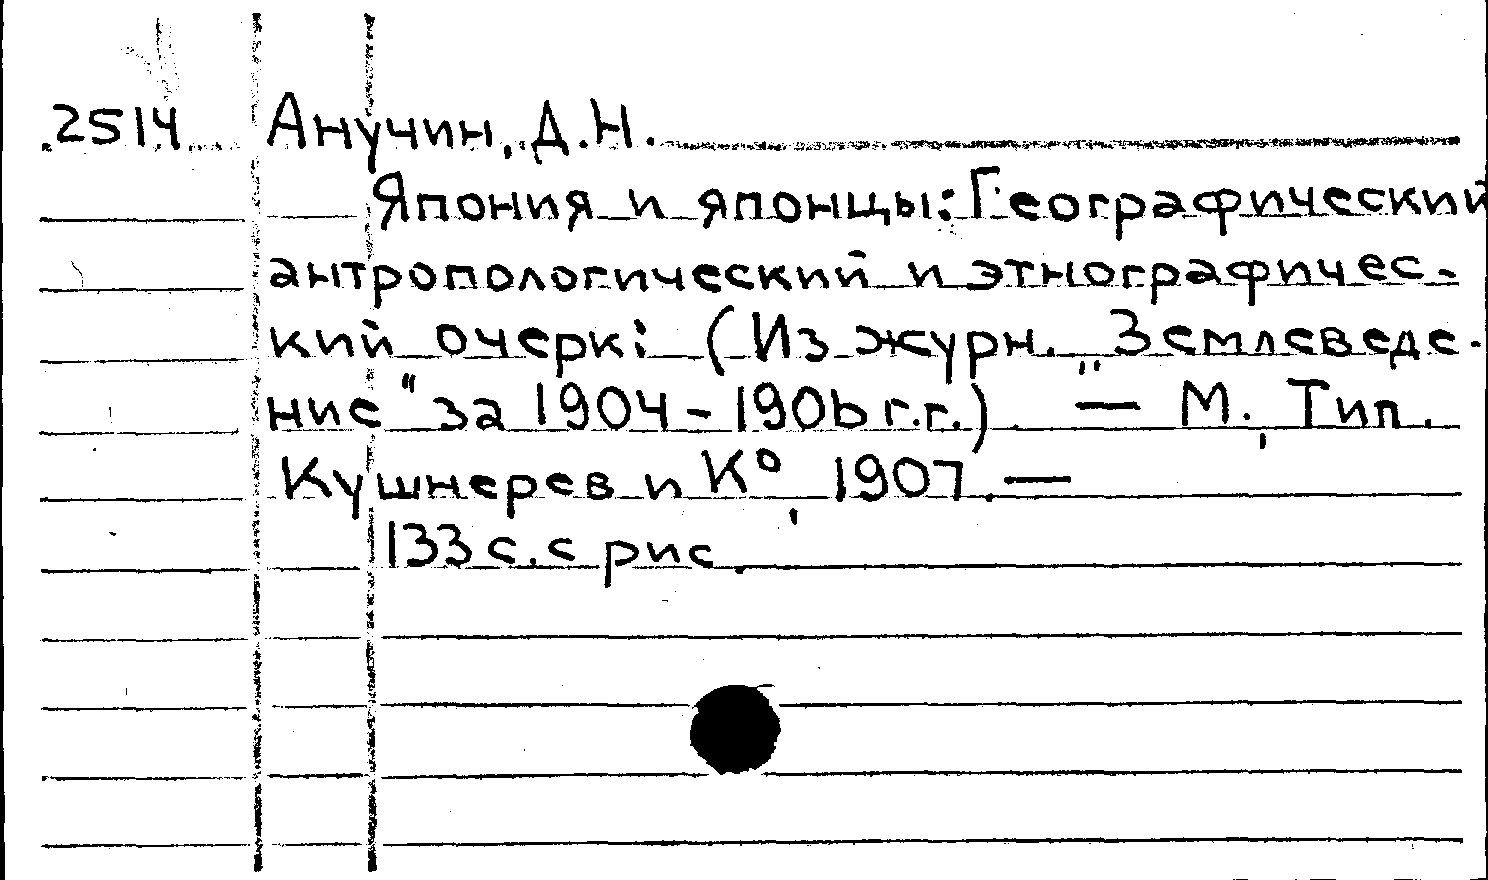 2514 Анучин, Д.Н.
Япония и японцы: Географический
антропологический и этнографичес-
кий очерк: (Из журн. „Землеведе-
ние" за 1904-1906 г.г.) — М., Тип.
Кушнерев и К°, 1907. —
133 с. с рис.